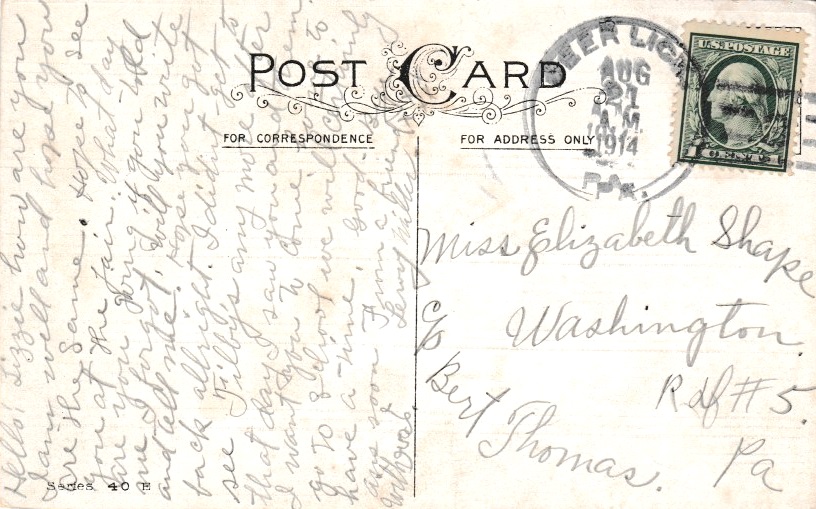 POST CARD
FOR CORRESPONDENCE
FOR ADDRESS ONLY
DEER LICK
AUG
21
A.M.
1914
PA.
U.S. POSTAGE
1 CENT 1
Miss Elizabeth Shape
Washington
c/o
Rdf # 5.
Bert
Thomas.
Pa
Hello! Lizzie how are you
I am well and hope you
are the same. Hope to see
you at the fair. What day
are you going if you told
me I forgot, will you write
and tell me. Hope you got
back allright. I didn't get to
see Tilby's any more after
that day I saw you and them.
I want you to come
go to school we will
have a time. Good
soon From a
Series 40 E